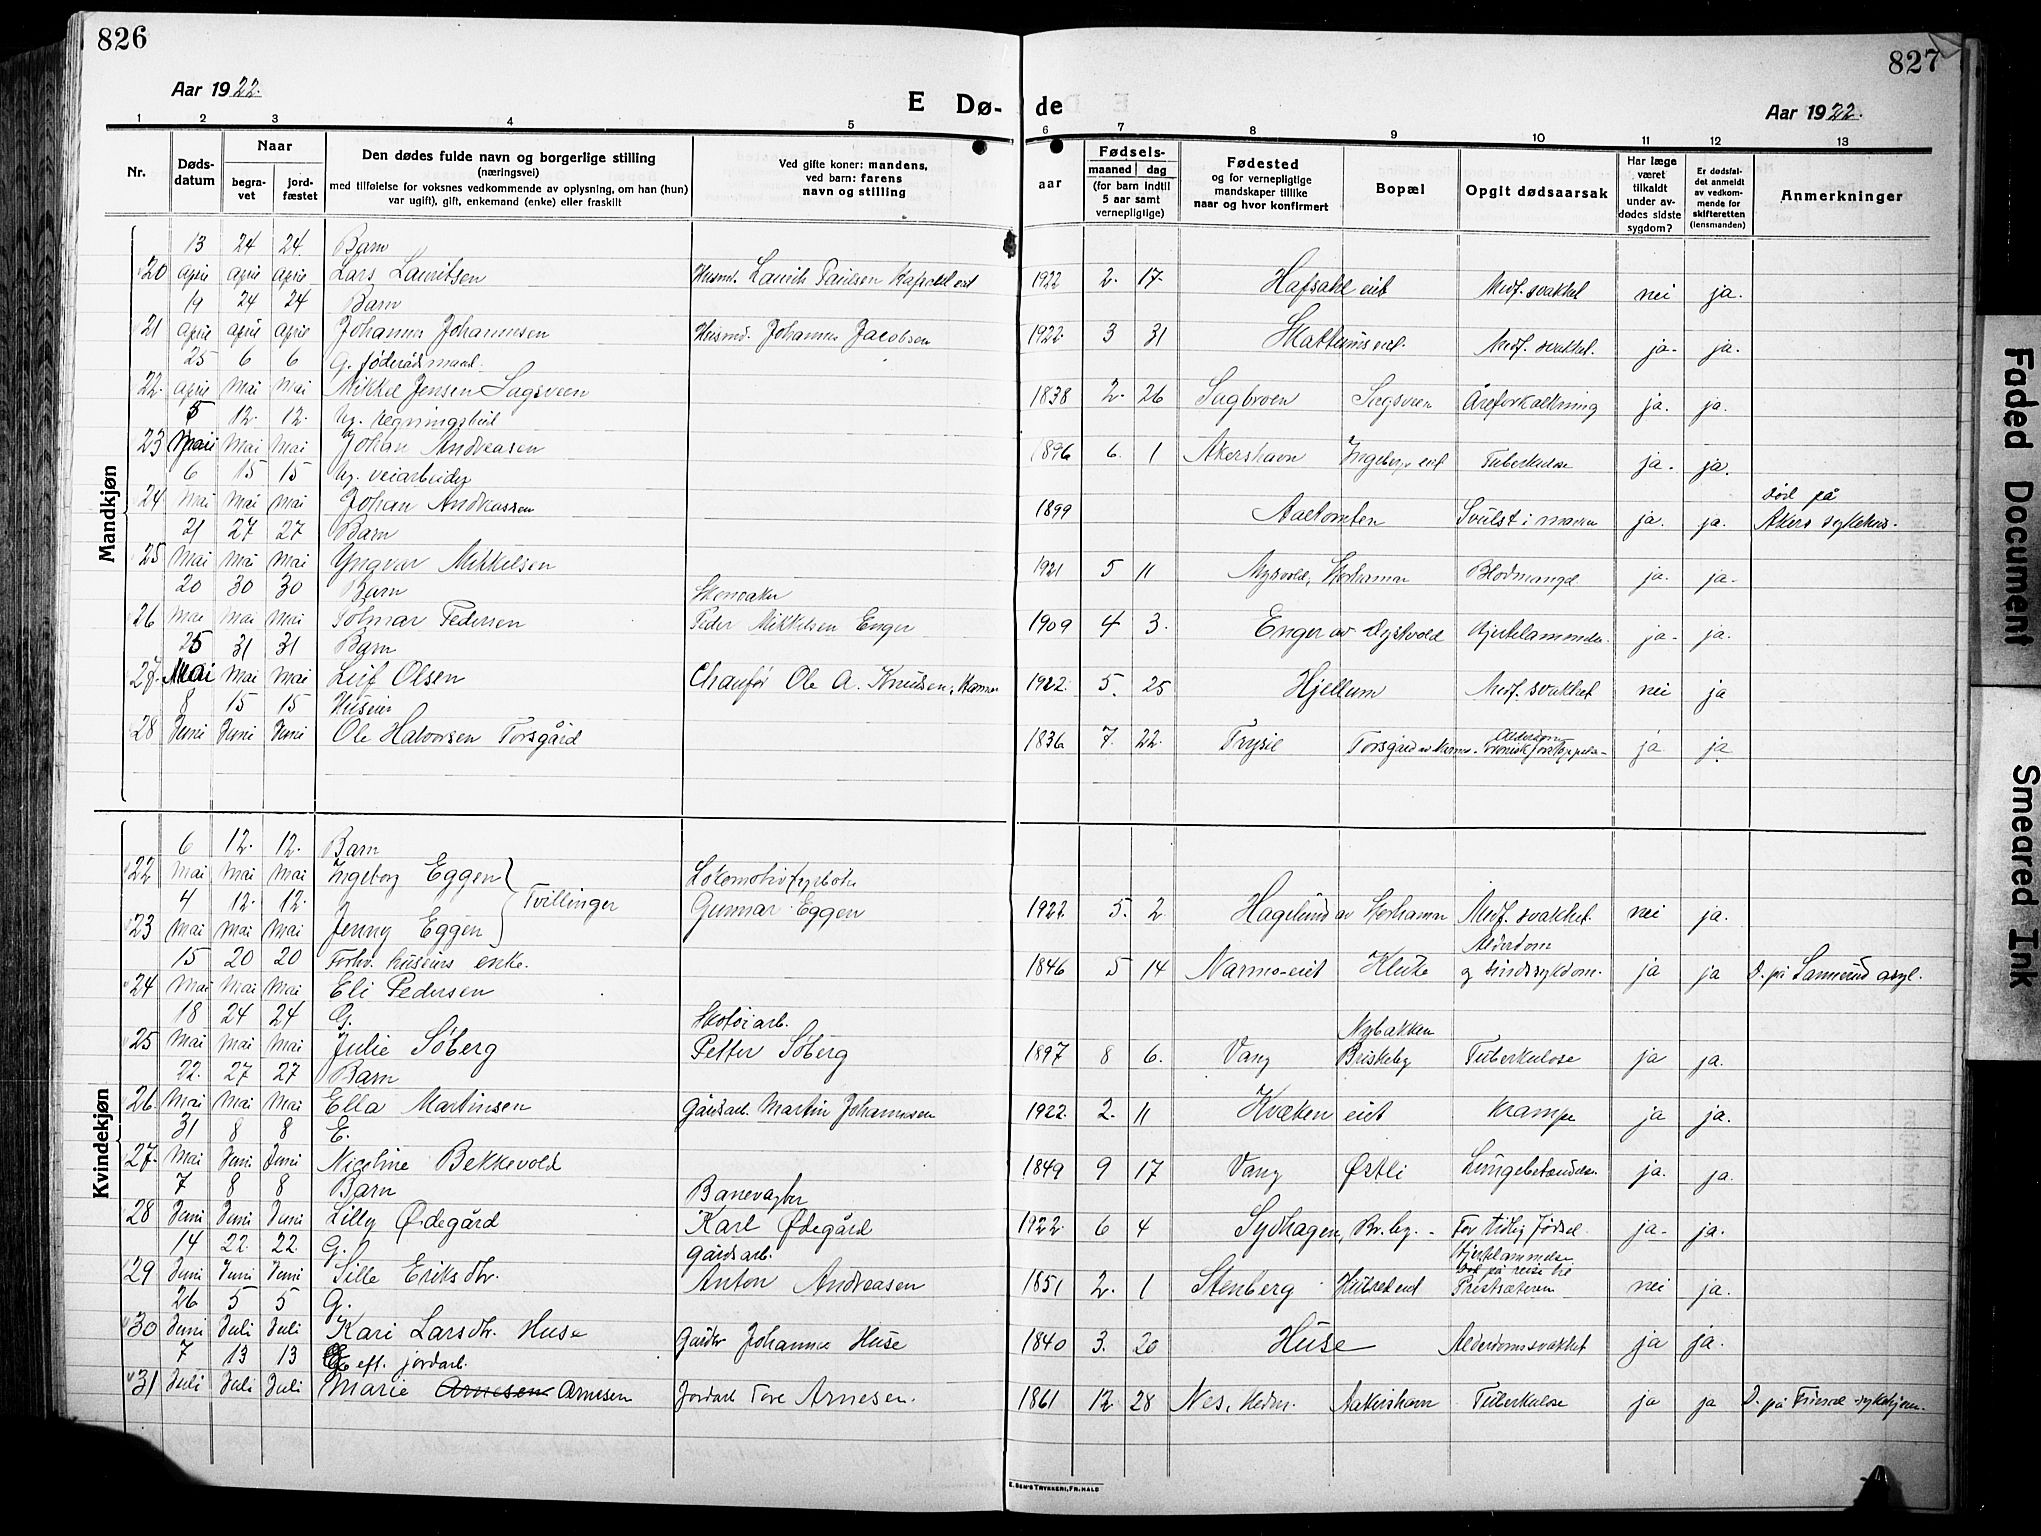 826
827
Aar 1922.
E Dø-
de
Aar 1922.
1 2 3 4 5 6 7 8 9 10 11 12 13
Nr.
Døds-
datum
Naar
begra-
vet
jord-
fæstet
Den dødes fulde navn og borgerlige stilling
(næringsvei)
med tilføielse for voksnes vedkommende av oplysning, om han (hun)
var ugift), gift, enkemand (enke) eller fraskilt
Ved gifte koner: mandens,
ved barn: farens
navn og stilling
Fødsels-
aar
maaned dag
(for barn indtil
5 aar samt
vernepligtige)
Fødested
og for vernepligtige
mandskaper tillike
naar og hvor konfirmert
Bopæl
Opgit dødsaarsak
Har læge
været
tilkaldt
under av-
dødes sidste
sygdom?
Er dødsfal-
det anmeldt
av vedkom-
mende for
skifteretten
(lensmanden)
Anmerkninger
Mandkjøn
13 24 24 Barn
20 april april april Lars Lauritsen Husmd. Laurits Paulsen 1922 2. 17. Hafsahl eiet Medf. svakhet nei ja.
19 24 24 Barn
21 april april april Johannes Johannesen Husmd. Johannes Jacobsen 1922. 3 31 Medf. svakhet. ja. ja.
25 6 6 G. føderådsmand.
22. april Mai Mai Mikkel Jensen Sagsveen 1838 2. 26 Sagbroen Sagsveen Åreforkalkning ja. ja.
5 12. 12. Ug.
23 Mai Mai Mai Johan Andreasen 1896 6. 1 Akershavn Ingeberg eiet Tuberkulose ja. ja.
6 15 15 Ug. veiarbeider
24 Mai Mai Mai Johan Andreassen 1899 Aaltomten Svulst i maven ja. ja. død på
21 27 27 Barn Akers sykehus.
25 Mai Mai Mai Yngvar Mikkelsen 1921 5 11 Nysvold, Storhamar Blodmangel ja. ja.
20 30 30 Barn Skomaker
26 Mai Mai Mai Solmar Pedersen Peder Mikkelsen Enger 1909 4 3. Enger av Dystvold Hjertelammelse ja. ja.
25 31 31 Barn
27. Mai Mai Mai Leif Olsen Chauför Ole A. Knutsen, Hamar 1922. 5. 25 Hjellum Medf. svakhet nei ja
8 15 15 Huseier
28 Juni Juni Juni Ole Halvorsen Torsgård 1836 7. 22. Trysil Torsgård av Hamar. Alderdom kronisk ja ja
Kvindekjøn
6 12. 12. Barn
22 Mai Mai Mai Ingeborg Eggen Lokomotivfyrbøter
4 12. 12. Tvillinger Gunnar Eggen 1922 5. 2 Hagelund av Storhamar Medf. svakhet. nei ja.
23 Mai Mai Mai Jenny Eggen
15 20 20 Forhv. huseiers enke. 1846 5 14 Narmo-eiet Kluke Alderdom og sindssykdom. ja ja D. på Sanerud asyl.
24 Mai Mai Mai Eli Pedersen
18 24 24 G. Skotøiarb. Nybakken
25 Mai Mai Mai Julie Søberg Petter Søberg 1897 8 6. Vang Briskeby Tuberkulose ja ja.
22. 27 27 Barn
26. Mai Mai Mai Ella Martinsen Gårdsarb. Martin Johannesen 1922. 2. 11 Kvæken eiet Krampe ja ja.
31 8 8 E.
27. Mai Juni Juni Nicoline Bekkevold 1849 9 17 Vang Østli Lungebetændelse. ja. ja.
7 8 8 Barn Banevagter
28 Juni Juni Juni Lilly Ødegård Karl Ødegård 1922 6 4 Sydhagen, Br.by. For tidlig fødsel. ja. ja.
14 22. 22. G. Gårdsarb. Hjertelammelse
29 Juni Juni Juni Sille Eriksdtr. Anton Andreasen 1851 2. 1 Stenberg Død på reise til Prestsæteren nei ja.
26 5 5 G.
30 Juni Juli Juli Kari Larsdtr. Huse Gårdbr Johannes Huse 1840 3. 20 Huse Alderdomssvakhet ja ja.
7 13 13 G. eft. jordarb.
31 Juli Juli Juli Marie Arnesen Arnesen Jordarb Tore Arnesen. 1861 12 28 Nes, Hedm. Aakershavn Tuberkulose ja ja D. på sykehjem.
E. SEM'S TRYKKERI, FR.HALD
Faded Document
Smeared Ink